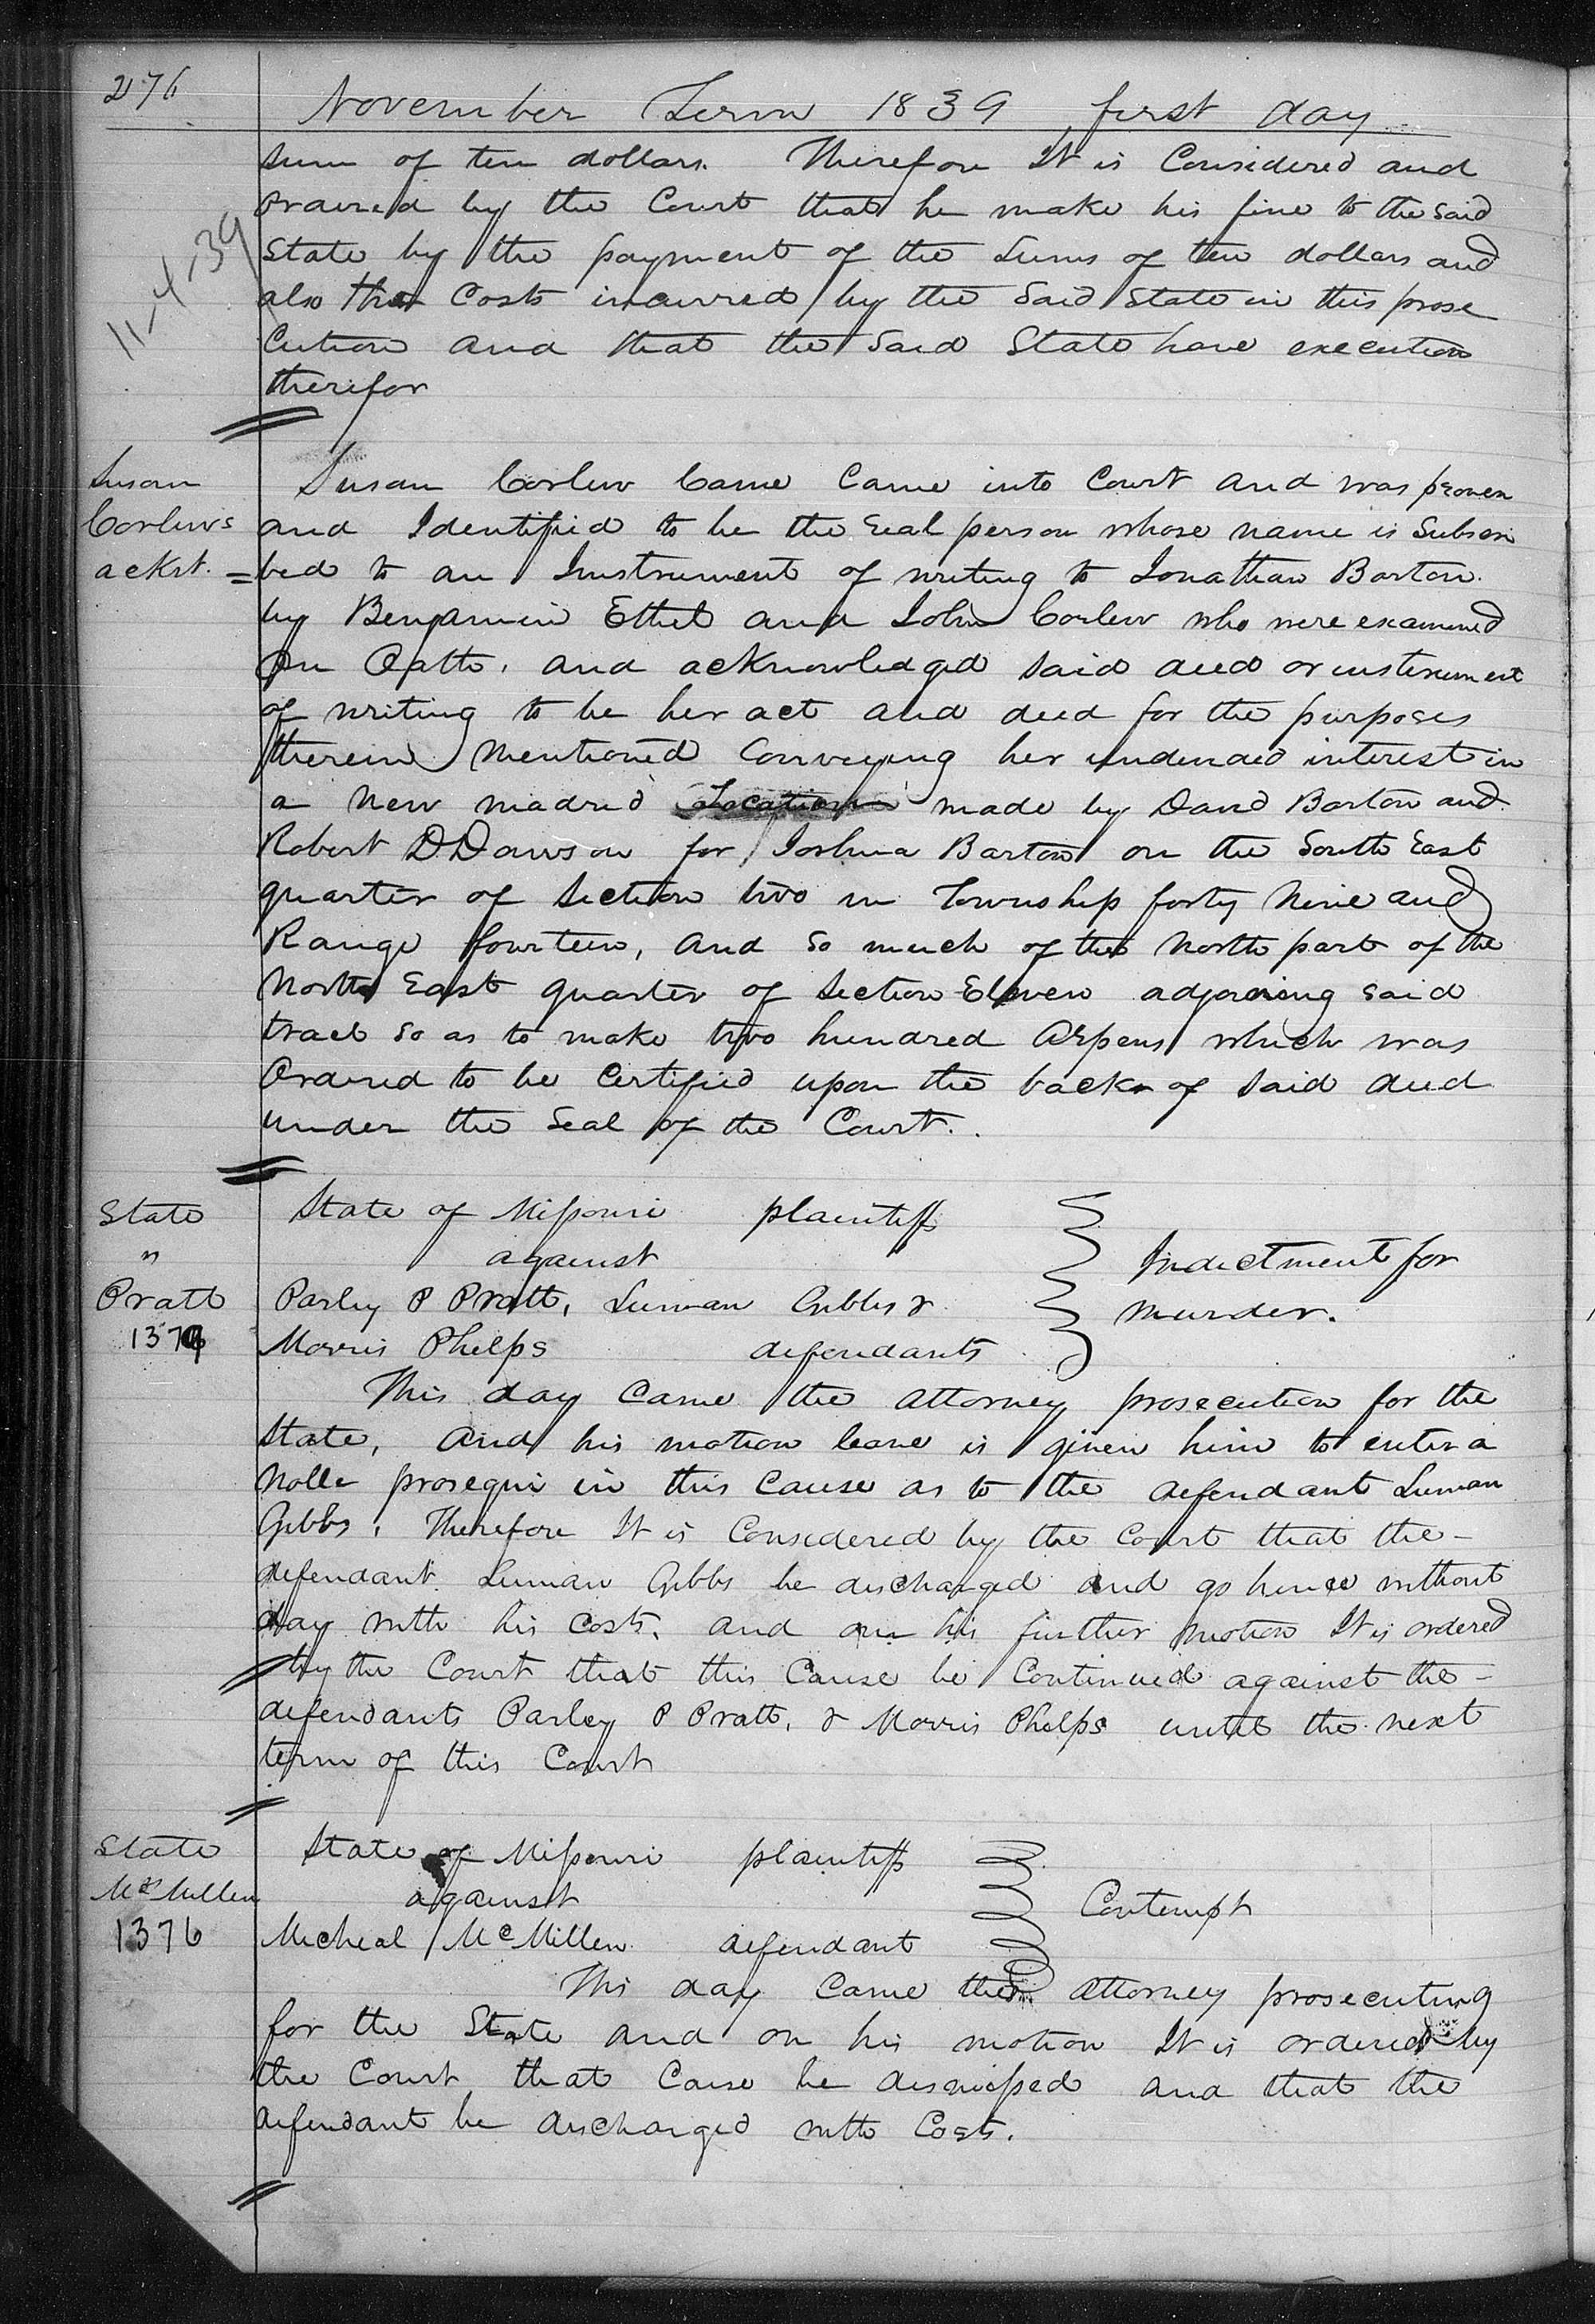 276
November Term 1839 first day
sum of ten dollars. Therefore It is Considered and
Ordered by the Court that he make his fine to the Said
State by the payment of the Sums of ten dollars and
11-4-39
also the Costs incurred by the Said State in this prose
cution and that the Said State have execution
therefor
Susan
Corlews
ackt. =
Susan Corlew Came Came into Court and was proven
and Identified to be the real person whose name is Subscri
bed to an Instrument of writing to Jonathan Barton
by Benjamin Ethel and John Corlew who were examined
On Oath, and acknowledged said deed or insterument
of writing to be her act and deed for the purposes
therein mentioned Conveying her undevided interest in
a New madrid Location made by David Barton and
Robert D Dawson for Joshua Barton on the South East
quarter of Section two in Township forty Nine and
Range fourteen, and So much of the North part of the
North East quarter of Section Eleven adjoining said
tract So as to make two hundred Arpens which was
Ordered to be Certified upon the back of Said deed
under the Seal of the Court.
State
"
Pratt
State of Missouri plaintiff
against
Parley P Pratt, Luman Gibbs &
Morris Phelps defendants
Indictment for
murder.
This day came the Attorney prosecution for the
State, And his motion leave is given him to enter a
Nolle prosequi in this Cause as to the defendant Luman
Gibbs, Therefore It is Considered by the Court that the-
defendant Luman Gibbs be discharged and go hence without
day with his Costs, and on his further motion It is ordered
by the Court that this Cause be Continued against the-
defendants Parley P Pratt, & Morris Phelps until the next
term of this Court
State
McMillen
1376
State of Missouri plaintiff
against
Micheal McMillen defendant
Contempt
This day Came the Attorney prosecuting
for the State and on his motion It is ordered by
the Court that Cause be dismissed and that the
defendant be discharged with Costs.